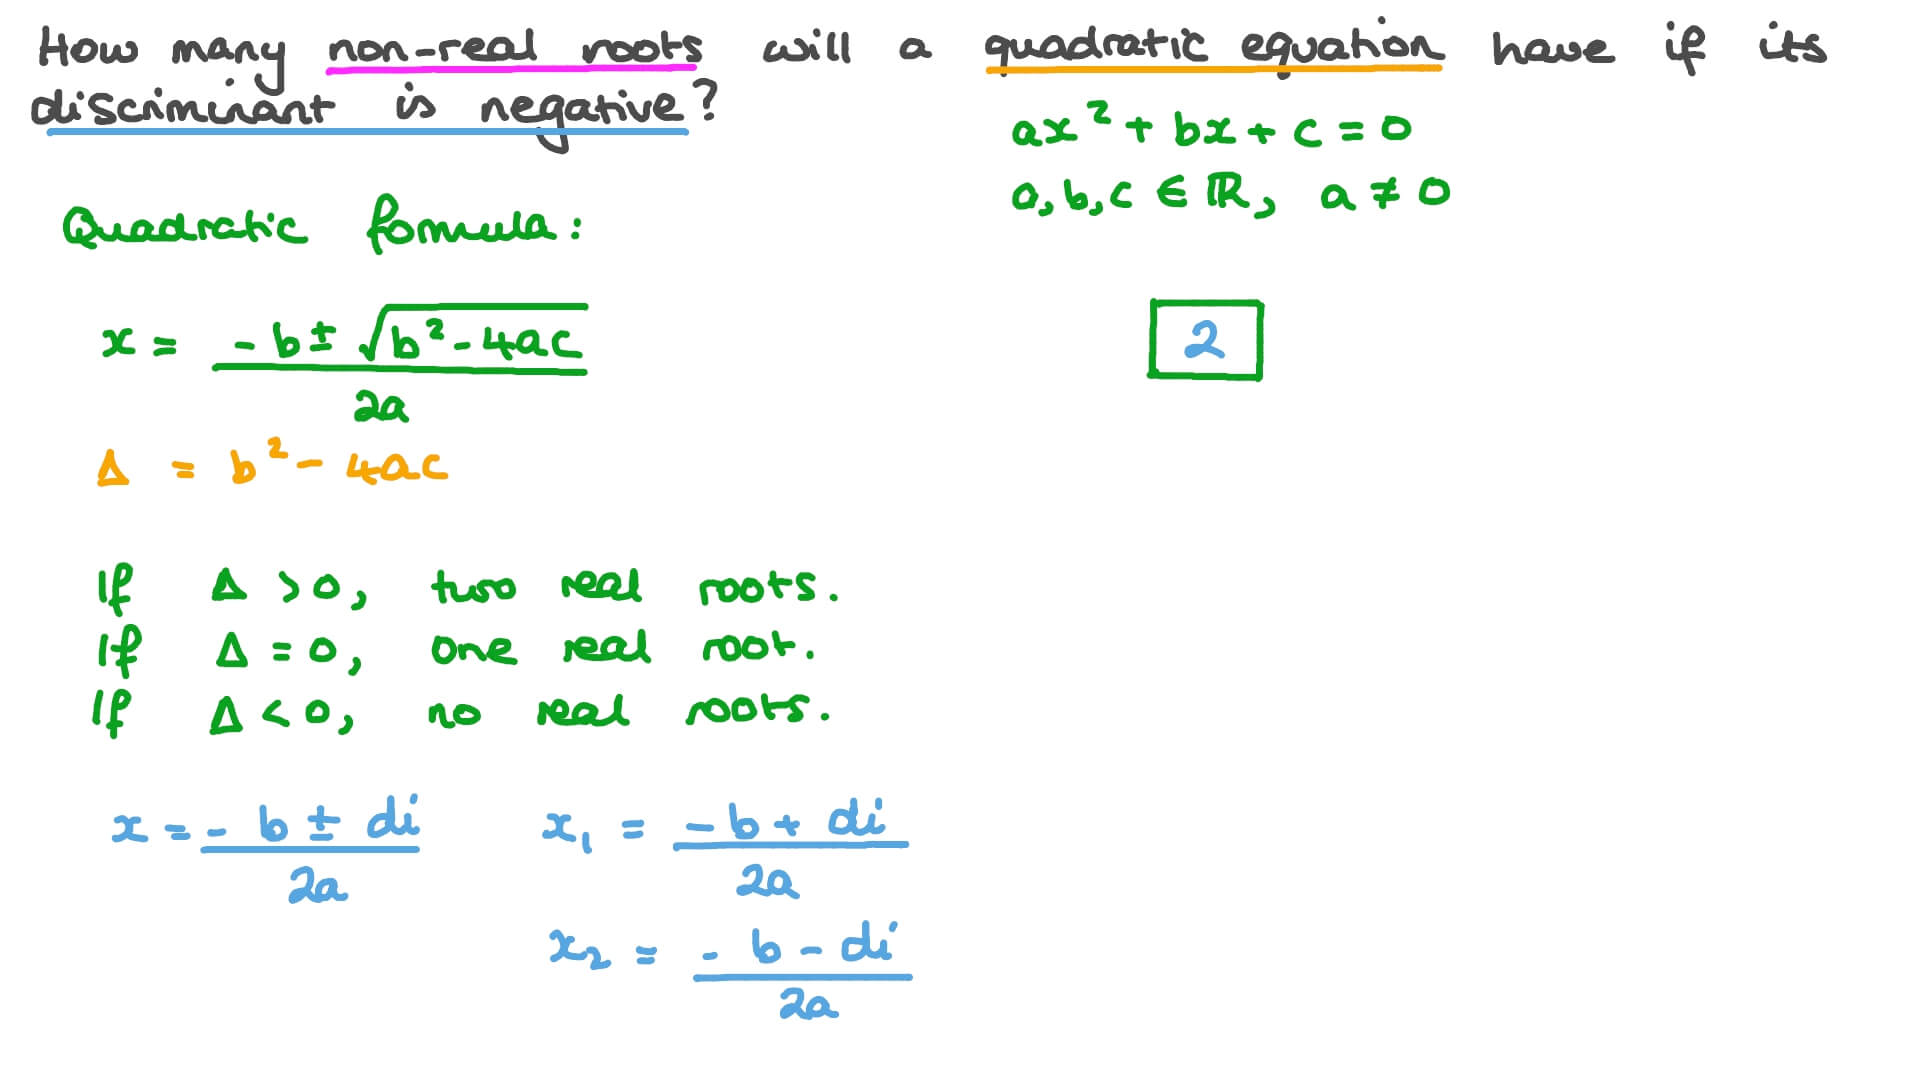 How many non-real roots will a quadratic equation have if its
discriminant is negative?
ax² + bx + c = 0
a, b, c ∈ ℝ, a ≠ 0
Quadratic formula:
x = (-b ± √(b² - 4ac)) / 2a
2
Δ = b² - 4ac
If Δ > 0, two real roots.
If Δ = 0, one real root.
If Δ < 0, no real roots.
x = (-b ± di) / 2a
x₁ = (-b + di) / 2a
x₂ = (-b - di) / 2a